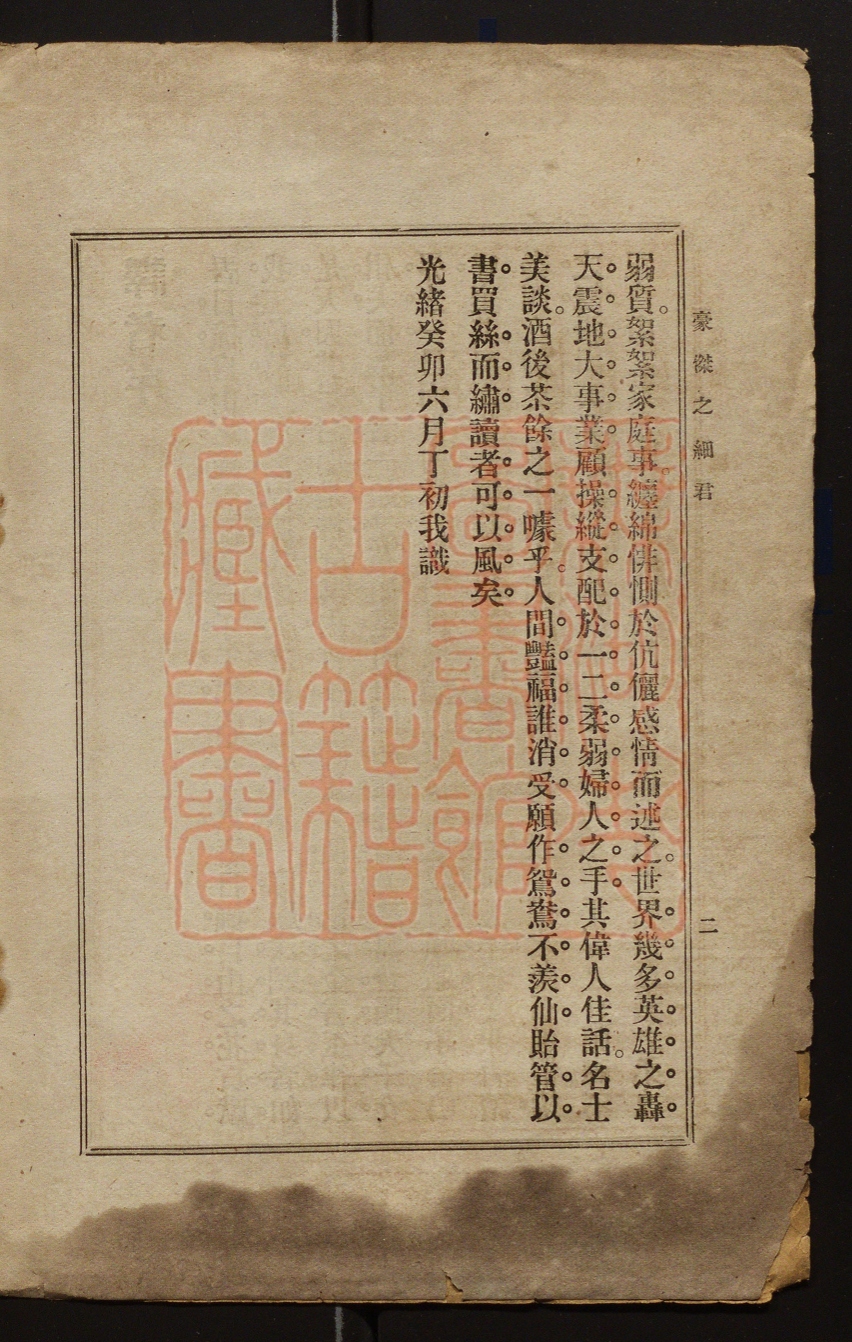 豪傑之細君
二
弱質。絮絮家庭事。纏綿悱惻於伉儷感情而述之。世界幾多英雄之轟
天震地大事業。顧操縱支配於一二柔弱婦人之手。其偉人佳話。名士
美談。酒後茶餘之一噱乎。人間豔福誰消受。願作鴛鴦不羨仙。貽管以
書。買絲而繡。讀者可以風矣。
光緒癸卯六月丁初我識
古籍
藏書